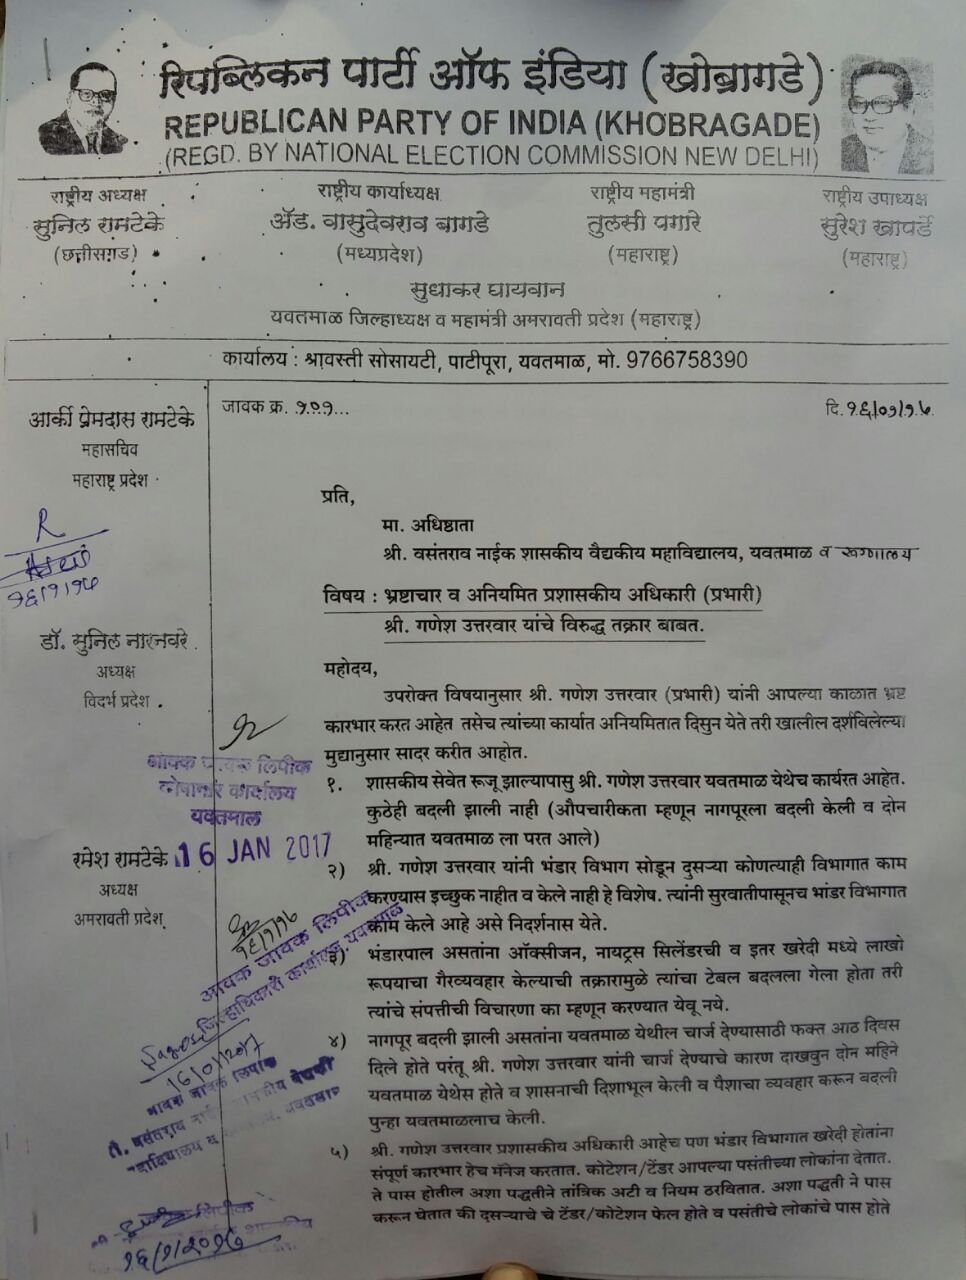 रिपब्लिकन पार्टी ऑफ इंडिया (खोब्रागडे)
REPUBLICAN PARTY OF INDIA (KHOBRAGADE)
(REGD. BY NATIONAL ELECTION COMMISSION NEW DELHI)
राष्ट्रीय अध्यक्ष
सुनिल रामटेके
(छत्तीसगड)
राष्ट्रीय कार्याध्यक्ष
ॲड. वासुदेवराव बागडे
(मध्यप्रदेश)
राष्ट्रीय महामंत्री
तुलसी पगारे
(महाराष्ट्र)
राष्ट्रीय उपाध्यक्ष
सुरेश खापर्डे
(महाराष्ट्र)
सुधाकर घायवान
यवतमाळ जिल्हाध्यक्ष व महामंत्री अमरावती प्रदेश (महाराष्ट्र)
कार्यालय : श्रावस्ती सोसायटी, पाटीपूरा, यवतमाळ, मो. 9766758390
आर्की प्रेमदास रामटेके
महासचिव
महाराष्ट्र प्रदेश
R
१६/१/१७
डॉ. सुनिल नारनवरे
अध्यक्ष
विदर्भ प्रदेश
आवक जावक लिपीक
कोषागार कार्यालय
यवतमाल
रमेश रामटेके
16 JAN 2017
अध्यक्ष
अमरावती प्रदेश
१६/१/१७
आवक जावक लिपीक
जिल्हाधिकारी कार्यालय यवतमाळ
16/01/2017
आवक जावक लिपीक
वसंतराव
लिपीक
१६/१/२०१७
जावक क्र. १०१...
दि. १६/०१/१७
प्रति,
मा. अधिष्ठाता
श्री. वसंतराव नाईक शासकीय वैद्यकीय महाविद्यालय, यवतमाळ व रुग्णालय
विषय : भ्रष्टाचार व अनियमित प्रशासकीय अधिकारी (प्रभारी)
श्री. गणेश उत्तरवार यांचे विरुद्ध तक्रार बाबत.
महोदय,
उपरोक्त विषयानुसार श्री. गणेश उत्तरवार (प्रभारी) यांनी आपल्या काळात भ्रष्ट
कारभार करत आहेत तसेच त्यांच्या कार्यात अनियमितात दिसुन येते तरी खालील दर्शविलेल्या
मुद्यानुसार सादर करीत आहोत.
१. शासकीय सेवेत रूजू झाल्यापासु श्री. गणेश उत्तरवार यवतमाळ येथेच कार्यरत आहेत.
कुठेही बदली झाली नाही (औपचारीकता म्हणून नागपूरला बदली केली व दोन
महिन्यात यवतमाळ ला परत आले)
२) श्री. गणेश उत्तरवार यांनी भंडार विभाग सोडून दुसऱ्या कोणत्याही विभागात काम
करण्यास इच्छुक नाहीत व केले नाही हे विशेष. त्यांनी सुरवातीपासूनच भांडर विभागात
काम केले आहे असे निदर्शनास येते.
३) भंडारपाल असतांना ऑक्सीजन, नायट्रस सिलेंडरची व इतर खरेदी मध्ये लाखो
रूपयाचा गैरव्यवहार केल्याची तक्रारामुळे त्यांचा टेबल बदलला गेला होता तरी
त्यांचे संपत्तीची विचारणा का म्हणून करण्यात येवू नये.
४) नागपूर बदली झाली असतांना यवतमाळ येथील चार्ज देण्यासाठी फक्त आठ दिवस
दिले होते परंतू श्री. गणेश उत्तरवार यांनी चार्ज देण्याचे कारण दाखवुन दोन महिने
यवतमाळ येथेस होते व शासनाची दिशाभूल केली व पैशाचा व्यवहार करून बदली
पुन्हा यवतमाळलाच केली.
५) श्री. गणेश उत्तरवार प्रशासकीय अधिकारी आहेच पण भंडार विभागात खरेदी होतांना
संपूर्ण कारभार हेच मॅनेज करतात. कोटेशन/टेंडर आपल्या पसंतीच्या लोकांना देतात.
ते पास होतील अशा पद्धतीने तांत्रिक अटी व नियम ठरवितात. अशा पद्धती ने पास
करून घेतात की दसऱ्याचे चे टेंडर/कोटेशन फेल होते व पसंतीचे लोकांचे पास होते